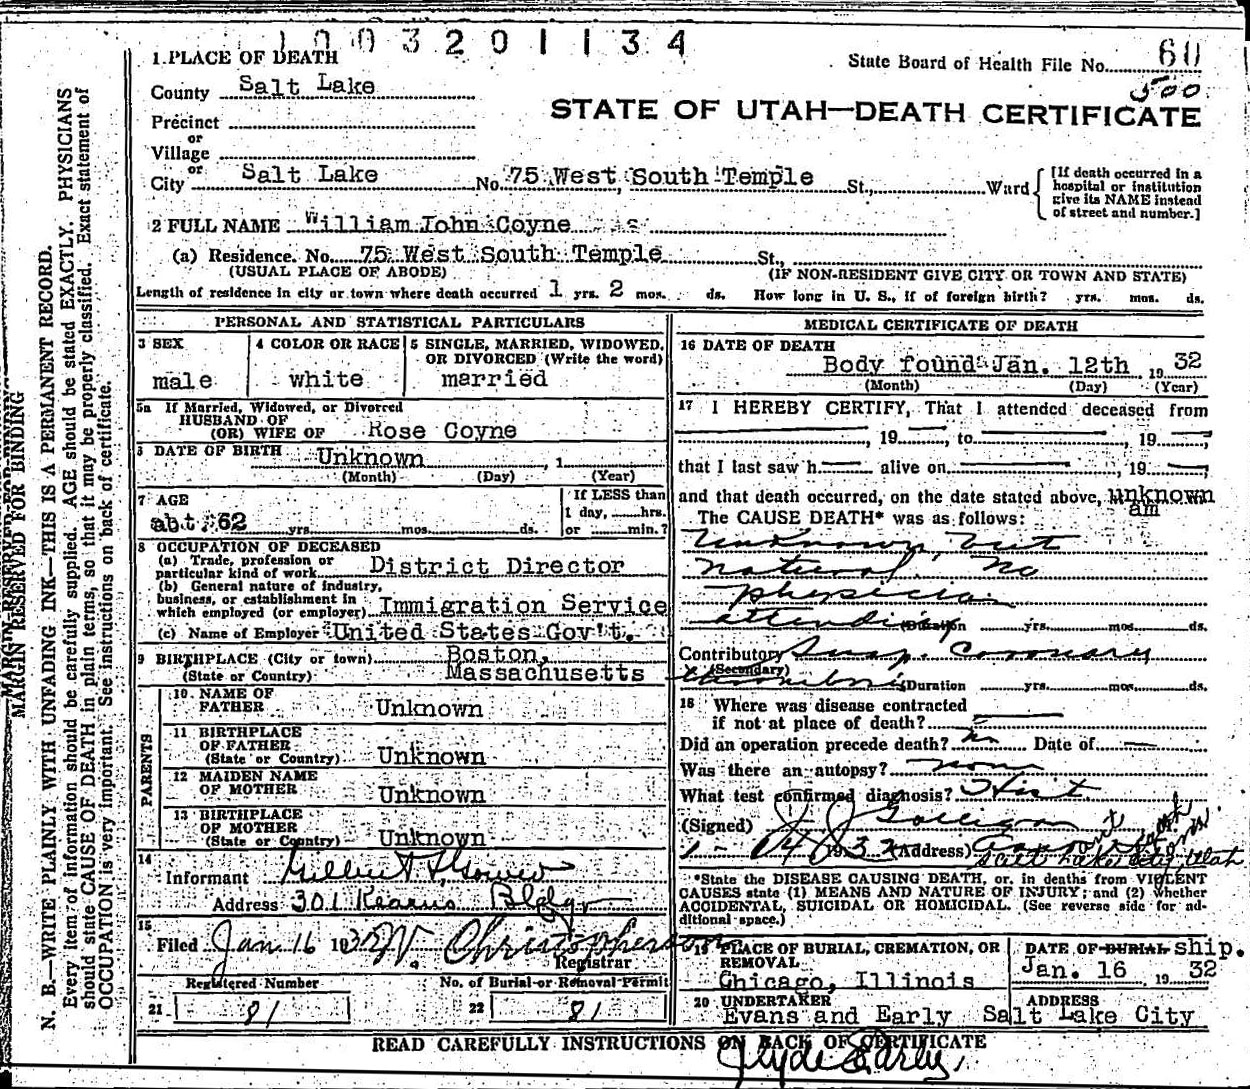 1003201134
1. PLACE OF DEATH
State Board of Health File No. 60
500
County Salt Lake
STATE OF UTAH—DEATH CERTIFICATE
Precinct
or
Village
or
City Salt Lake No. 75 West South Temple St., Ward
[If death occurred in a hospital or institution give its NAME instead of street and number.]
2 FULL NAME William John Coyne
(a) Residence. No. 75 West South Temple St.,
(USUAL PLACE OF ABODE) (IF NON-RESIDENT GIVE CITY OR TOWN AND STATE)
Length of residence in city or town where death occurred 1 yrs. 2 mos. ds. How long in U. S., if of foreign birth? yrs. mos. ds.
PERSONAL AND STATISTICAL PARTICULARS
3 SEX
male
4 COLOR OR RACE
white
5 SINGLE, MARRIED, WIDOWED, OR DIVORCED (Write the word)
married
5a If Married, Widowed, or Divorced
HUSBAND OF
(OR) WIFE OF Rose Coyne
6 DATE OF BIRTH Unknown , 1
(Month) (Day) (Year)
7 AGE
abt 62 yrs. mos. ds.
If LESS than
1 day, hrs.
or min.?
8 OCCUPATION OF DECEASED
(a) Trade, profession or
particular kind of work District Director
(b) General nature of industry,
business, or establishment in
which employed (or employer) Immigration Service
(c) Name of Employer United States Gov't.
9 BIRTHPLACE (City or town) Boston,
(State or Country) Massachusetts
PARENTS
10 NAME OF
FATHER Unknown
11 BIRTHPLACE
OF FATHER
(State or Country) Unknown
12 MAIDEN NAME
OF MOTHER Unknown
13 BIRTHPLACE
OF MOTHER
(State or Country) Unknown
14
Informant
Address 301 Kearns Bldg
15
Filed Jan 16 1932 W. Christopherson
Registrar
Registered Number No. of Burial or Removal Permit
21 81 22 81
MEDICAL CERTIFICATE OF DEATH
16 DATE OF DEATH
Body found Jan. 12th 19 32
(Month) (Day) (Year)
17 I HEREBY CERTIFY, That I attended deceased from
, 19 , to , 19 ,
that I last saw h alive on , 19
and that death occurred, on the date stated above, unknown
am
The CAUSE DEATH* was as follows:
Unknown, but
natural. No
physician
attending (Duration) yrs. mos. ds.
Contributory Susp. coronary
(Secondary) thrombosis (Duration yrs. mos. ds.
18 Where was disease contracted
if not at place of death?
Did an operation precede death? no Date of
Was there an autopsy? none
What test confirmed diagnosis? Hist.
(Signed) J J Galligan
1-14 1932 (Address)
Salt Lake City Utah
*State the DISEASE CAUSING DEATH, or, in deaths from VIOLENT
CAUSES state (1) MEANS AND NATURE OF INJURY; and (2) whether
ACCIDENTAL, SUICIDAL OR HOMICIDAL. (See reverse side for ad-
ditional space.)
19 PLACE OF BURIAL, CREMATION, OR
REMOVAL
Chicago, Illinois
DATE OF BURIAL ship.
Jan. 16 19 32
20 UNDERTAKER
Evans and Early
ADDRESS
Salt Lake City
READ CAREFULLY INSTRUCTIONS ON BACK OF CERTIFICATE
Clyde Early
MARGIN RESERVED FOR BINDING
N. B.—WRITE PLAINLY WITH UNFADING INK—THIS IS A PERMANENT RECORD.
Every item of information should be carefully supplied. AGE should be stated EXACTLY. PHYSICIANS
should state CAUSE OF DEATH in plain terms, so that it may be properly classified. Exact statement of
OCCUPATION is very important. See instructions on back of certificate.